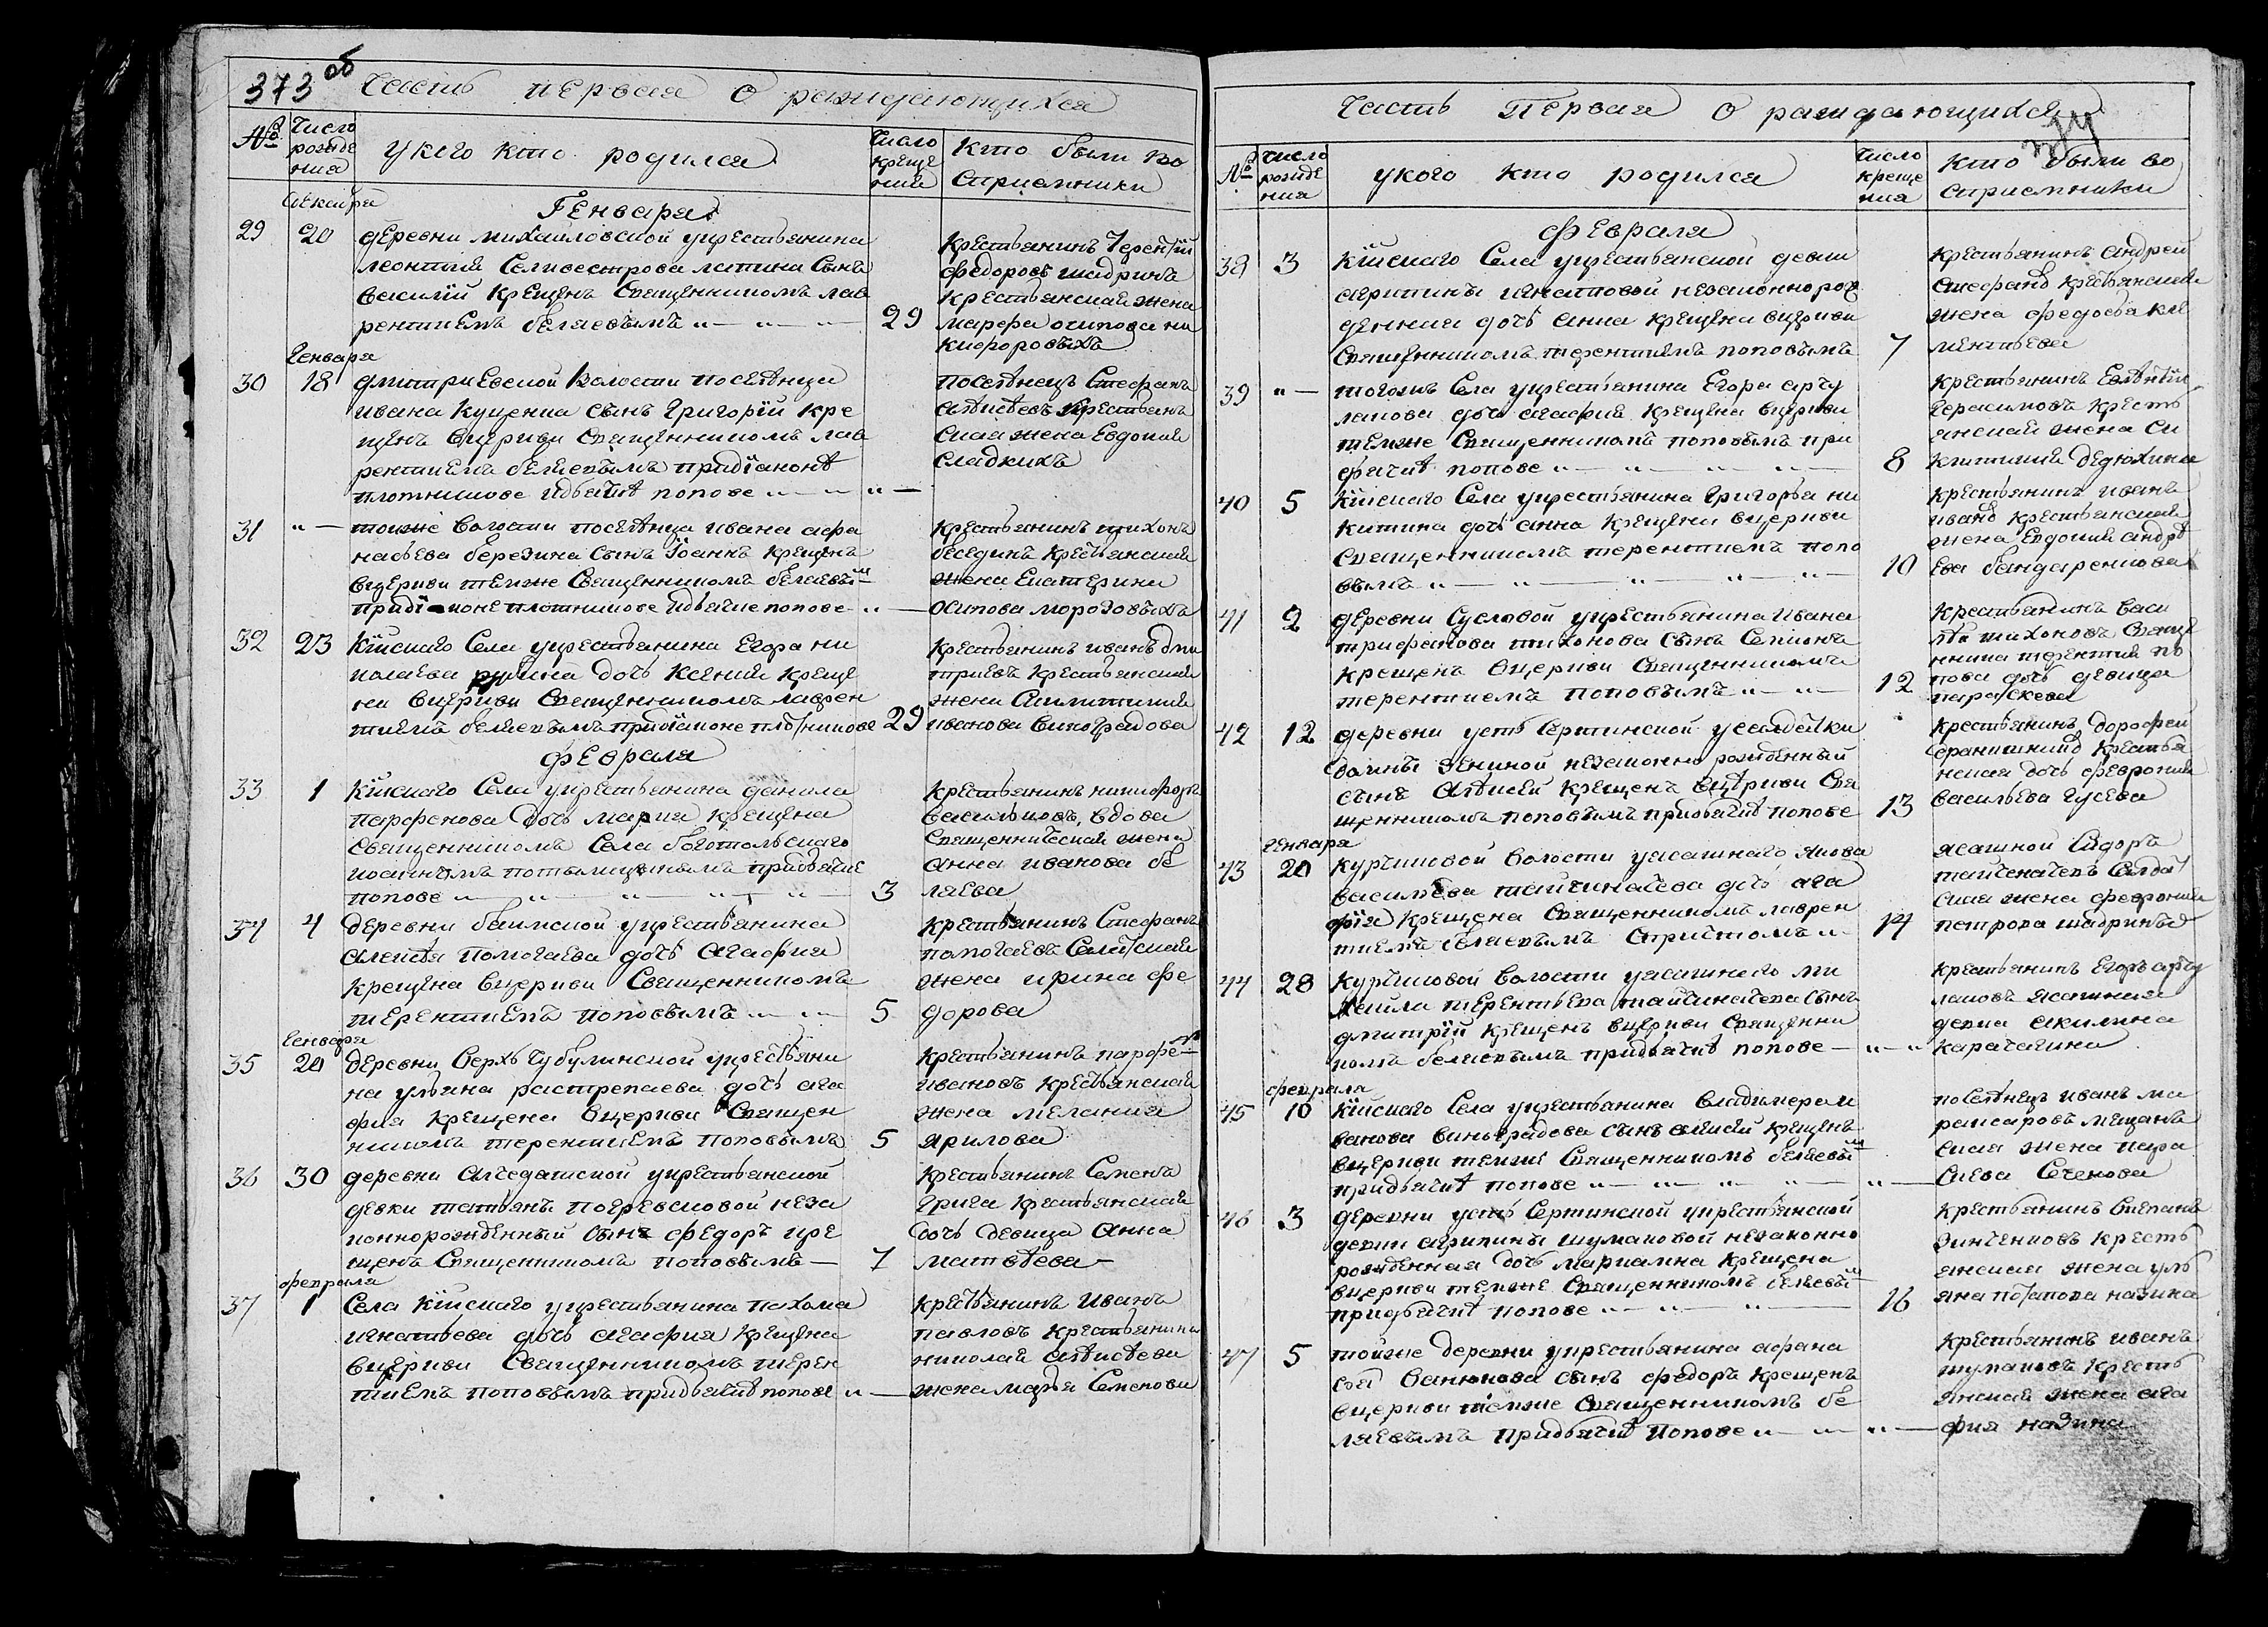 373 об Часть первая о раждающихся
№ Число рожде ния
у кого кто родился
Число креще ния
кто были во сприемники
декабря
Генваря
29 20 деревни михайловской укрестьянина
леонтия Селивестрова латина Сынъ
василїй крещенъ Священникомъ лав
рентиемъ беляевымъ 29
крестьянинъ Терентїй
федоровъ шадринъ
крестьянская жена
марфа осипова ни
кифоровыхъ
Генваря
30 18 дмитриевской Волости поселѣнца
ивана куценка сынъ григорїй кре
щенъ вцеркви Священникомъ лав
рентиемъ беляевымъ придїаконѣ
плотникове идьячкѣ попове
поселѣнецъ Стефанъ
алѣксѣевъ крестьянъ
ская жена Евдокия
Сладкихъ
31 тойже волости поселѣнца ивана афа
насьева березина Сынъ Їоаннъ крещенъ
вцеркви темже Священникомъ беляевы м
придїаконе плотникове идьячке попове
крестьянинъ тихонъ
беседикъ крестьянская
жена Екатерина
осипова морозовыхъ
32 23 Кїйскаго Села укрестьянина Егора ни
колаева дочь Ксения креще
на вцеркви Священникомъ лаврен
тиемъ беляевымъ придїаконе плотникове 29
крестьянинъ иванъ дми
триевъ крестьянская
жена Акилина
иванова виноградова
февраля
33 1 Кїйскаго Села укрестьянина данила
парфенова дочь мария крещена
Священникомъ Села боготольскаго
придьячке
попове 3
крестьянинъ никифоръ
васильковъ, вдова
Священническая жена
анна иванова бе
ляева
34 4 деревни баимской укрестьянина
алексѣя помогаева дочь агафия
крещена вцеркви Священникомъ
терентиемъ поповымъ 5
крестьянинъ Стефанъ
помогаевъ Солдатская
жена ирина фе
дорова
Генваря
35 20 деревни Верхъ Чубулинской укрестьяни
на ульяна растрепаева дочь ага
фия крещена вцеркви Священ
никомъ терентиемъ поповымъ 5
крестьянинъ парфе нъ
ивановъ крестьянская
жена мелания
ярилова
36 30 деревни алчедатской укрестьянской
девки татьяны незa
коннорожденный Сынъ федоръ кре
щенъ Священникомъ поповымъ 7
крестьянинъ Семенъ
грига крестьянская
дочь девица анна
матвѣева
февраля
37 1 Села Кїйскаго укрестьянина пахома
игнатьева дочь агафия крещена
вцеркви Священникомъ терен
тиемъ поповымъ придьячкѣ попове
крестьянинъ иванъ
павловъ крестьянина
николая алѣксѣева
жена марья Семенова
Часть Первая О раждающихся
№ число рожде ния
укого кто родился
Число креще ния
кто были во сприемники
февраля
38 3 Кїйскаго Села укрестьянской девки
игнатовой незаконнорож
денная дочь анна крещена вцеркви
Священникомъ терентиемъ поповымъ 7
крестьянинъ андрей
крестьянская
жена федосья кле
ментьева
39 тогожъ Села укрестьянина Егора арту
лапова дочь агафия крещена вцеркви
темже Священникомъ поповымъ при
дьячкѣ попове 8
крестьянинъ
герасимовъ кресть
янская жена
дедюхина
40 5 Кїйскаго Села укрестьянина григорья ни
китина дочь анна крещена вцеркви
Священникомъ терентиемъ попо
вымъ 10
крестьянинъ иванъ
крестьянская
жена Евдокия андрѣ
ева бандаренкова
41 2 деревни Сусловой укрестьянина Ивана
трифанова тихонова Сынъ Семионъ
крещенъ вцеркви Священникомъ
терентиемъ поповымъ 12
крестьянинъ васи
лѣй тихоновъ Свяще
нника терентия по
пова дочь девица
параскева
42 12 деревни усть Сертинской
незаконнорожденный
сынъ Алѣксѣй крещенъ вцеркви Свя
щенникомъ поповымъ придьячкѣ попове 13
крестьянинъ дорофей
крестья
нская дочь феврония
васильева гусева
генваря
43 20 курчиковой волости уясашнаго якова
васильева тайчиначева дочь ага
фїя крещена Священникомъ лаврен
тиемъ беляевымъ 14
ясашной Сидоръ
тайченачевъ Солдат
ская жена феврония
петрова шадриныхъ
44 28 курчиковой волости уясашнаго ми
хаила терентьева тайчиначева Сынъ
дмитрїй крещенъ вцеркви Священни
комъ беляевымъ придьячкѣ попове
крестьянинъ Егоръ арту
лаповъ ясашная
девка акилина
карачагина
февраля
45 10 Кїйскаго Села укрестьянина владимера и
ванова виноградова сынъ алексѣй крещенъ
вцеркви темже Священникомъ беляевы м
придьячкѣ попове
поселѣнецъ иванъ ма
каровъ мещанъ
ская жена пара
скева Сеченова
46 3 деревни усть Сертинской укрестьянской
девки агрипины шумаковой незаконно
рожденная дочь мариамна крещена
вцеркви темже Священникомъ беляевы м
придьячкѣ попове 16
крестьянинъ Степанъ
зинченковъ кресть
янская жена уль
яна потапова назина
47 5 тойже деревни укрестьянина афана
сья Ванюкова сынъ федоръ крещенъ
вцеркви темже Священникомъ бе
ляевымъ придьячкѣ попове
крестьянинъ иванъ
шумаковъ кресть
янская жена ага
фия назина